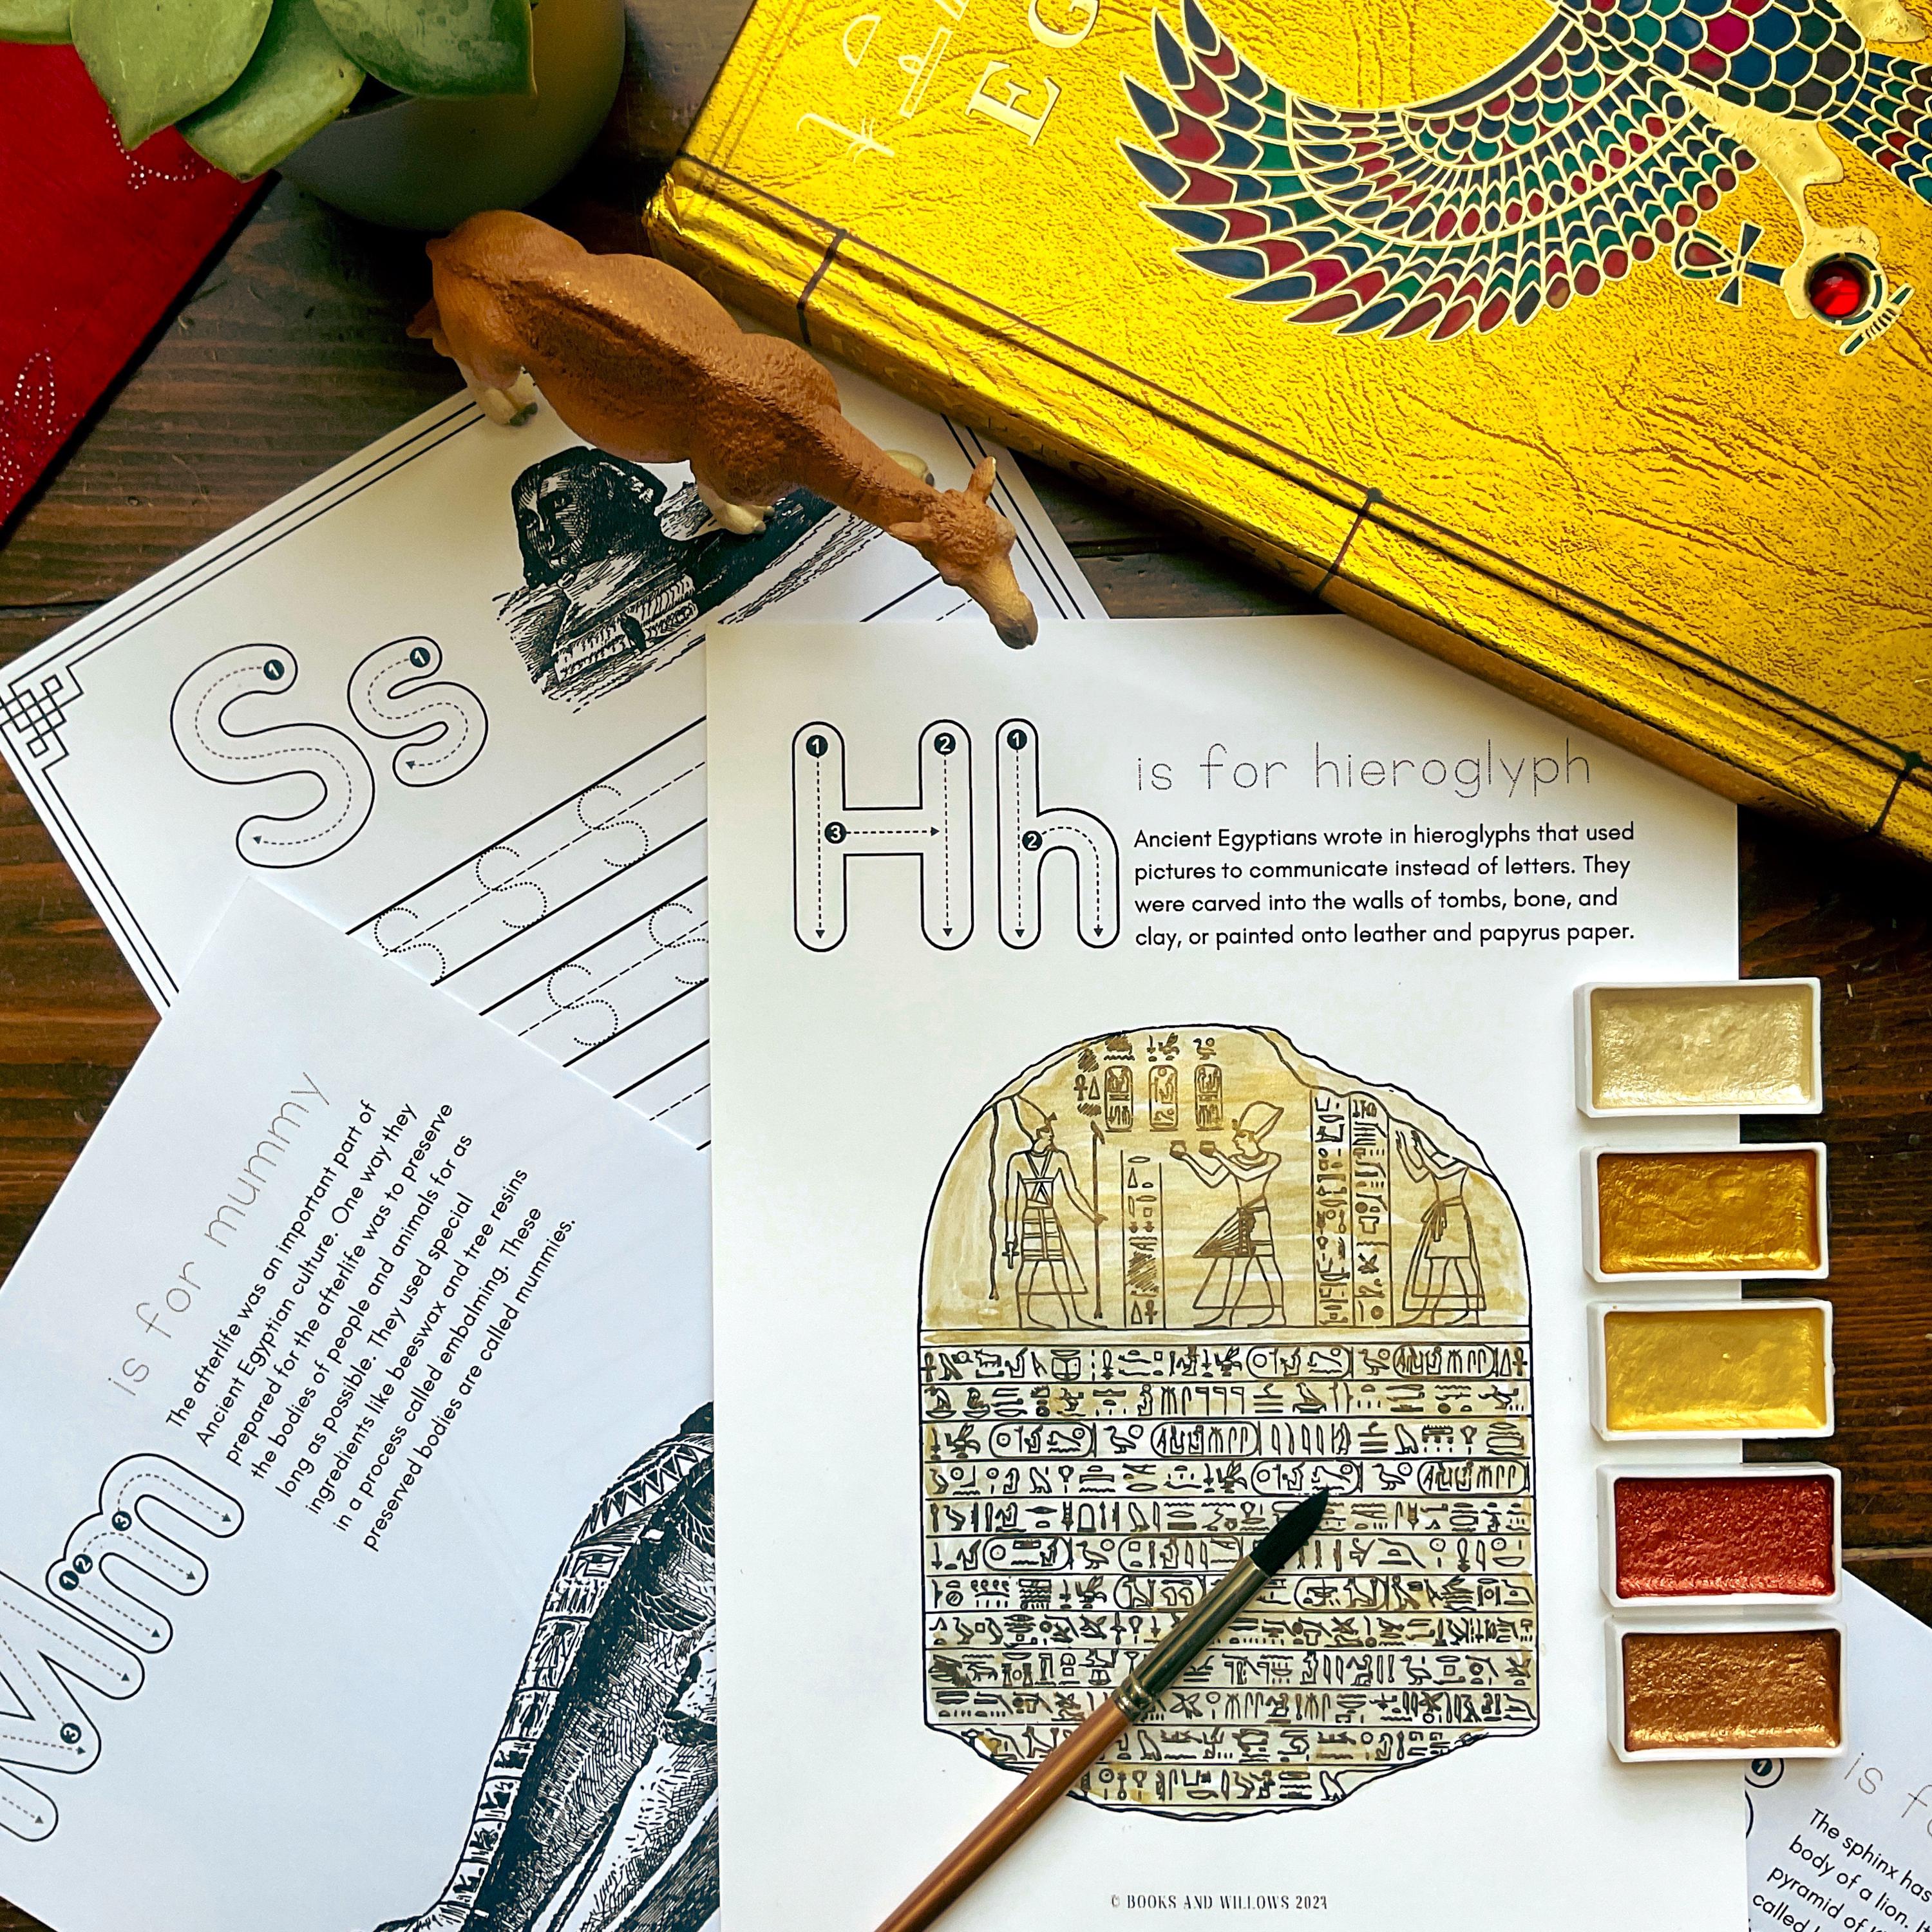 EG
Ss
S S S
S S
Hh
is for hieroglyph
Ancient Egyptians wrote in hieroglyphs that used
pictures to communicate instead of letters. They
were carved into the walls of tombs, bone, and
clay, or painted onto leather and papyrus paper.
Mm
is for mummy
The afterlife was an important part of
Ancient Egyptian culture. One way they
prepared for the afterlife was to preserve
the bodies of people and animals for as
long as possible. They used special
ingredients like beeswax and tree resins
in a process called embalming. These
preserved bodies are called mummies.
is f
The sphinx has
body of a lion.
pyramid of
called
© BOOKS AND WILLOWS 2024